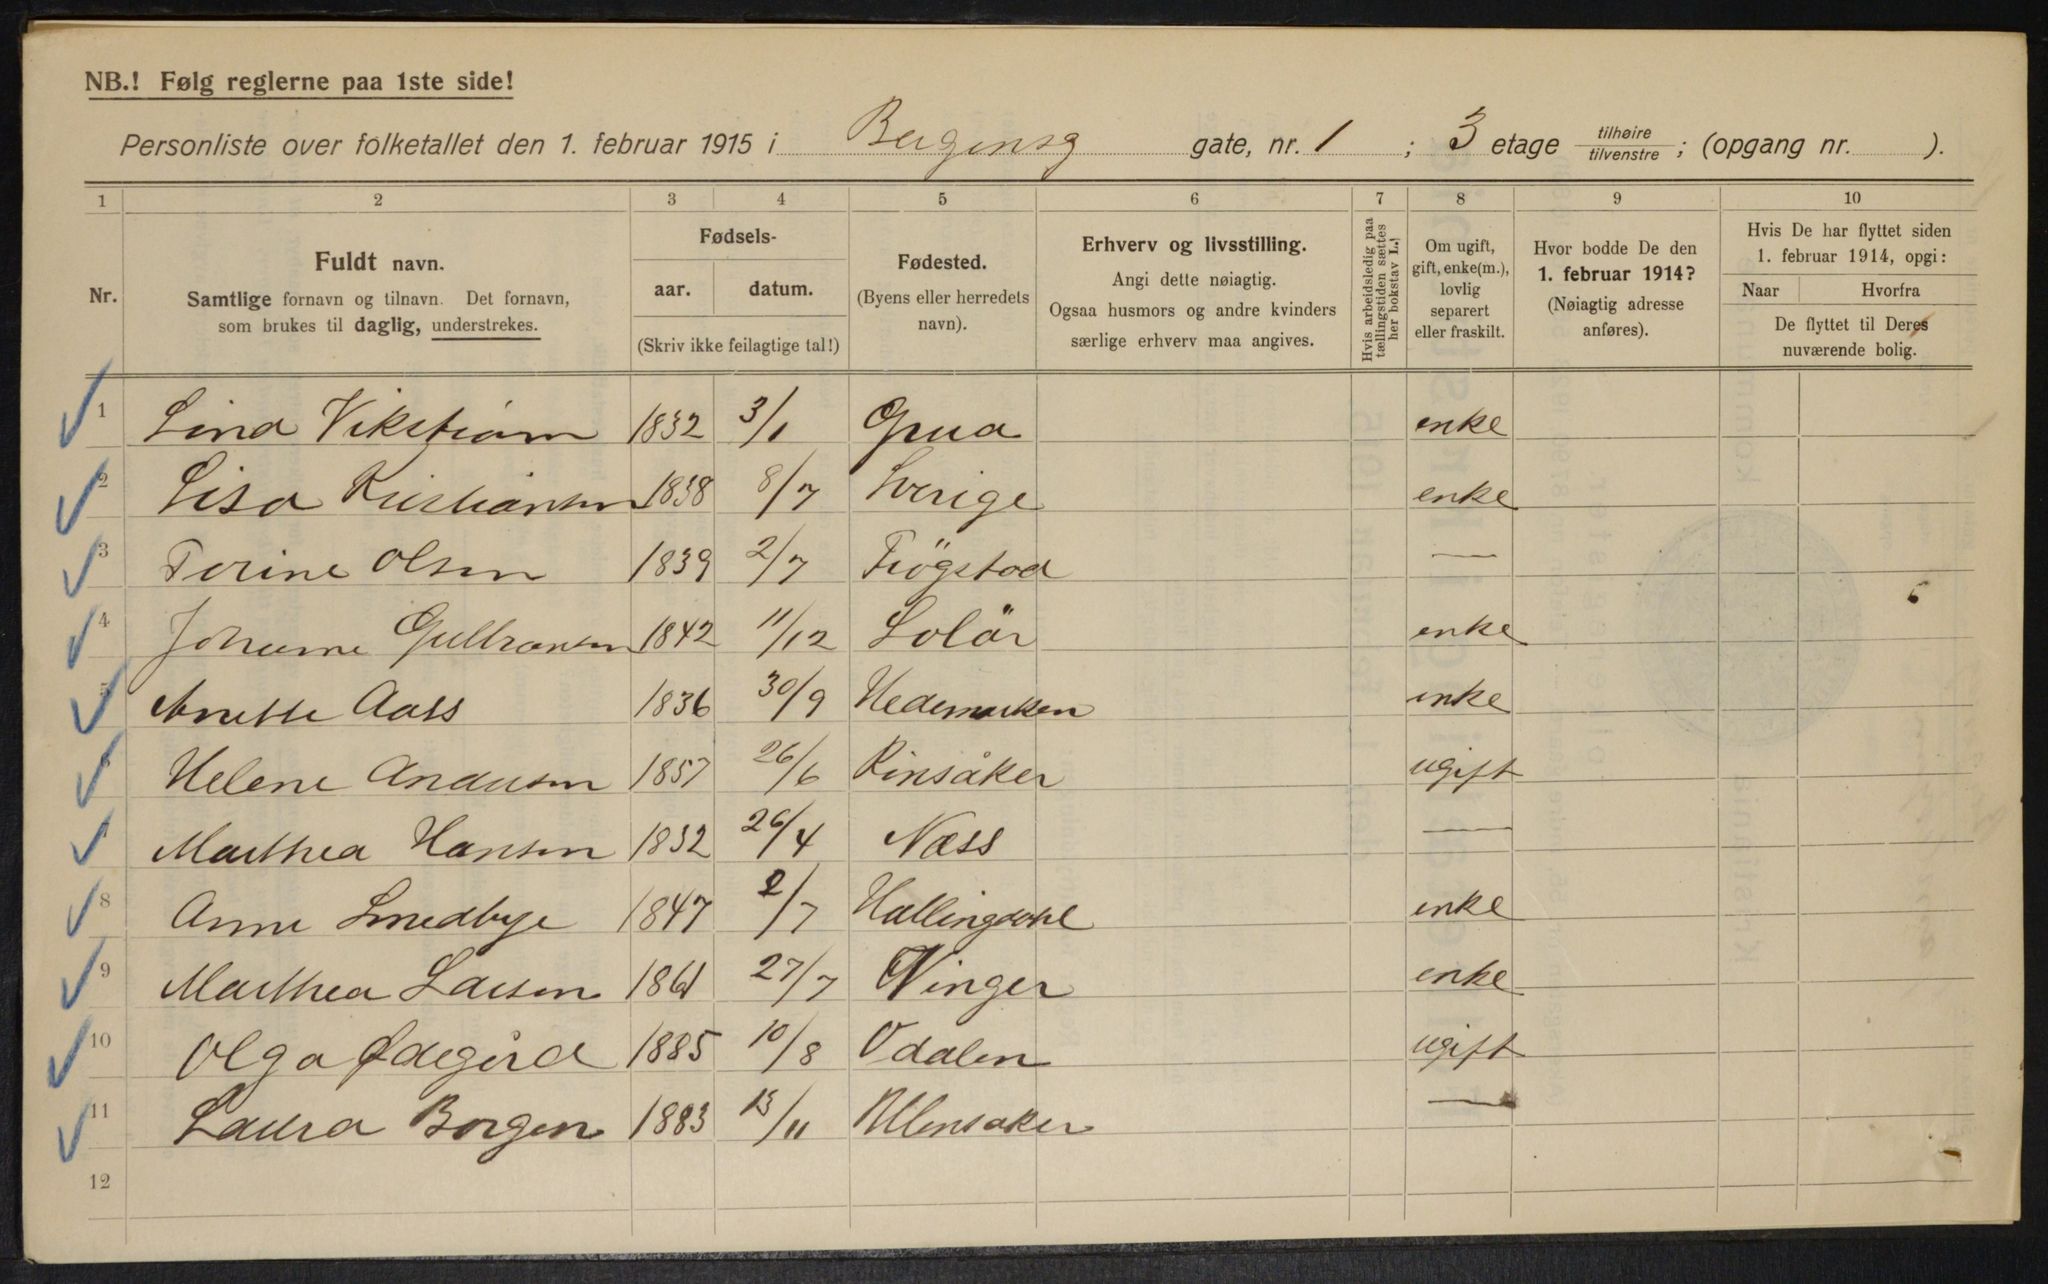 NB.! Følg reglerne paa 1ste side!
Personliste over folketallet den 1. februar 1915 i Bergensg gate, nr. 1 ; 3 etage tilhøire / tilvenstre ; (opgang nr. ).
1 2 3 4 5 6 7 8 9 10
Nr.
Fuldt navn.
Samtlige fornavn og tilnavn. Det fornavn,
som brukes til daglig, understrekes.
Fødsels-
aar. datum.
(Skriv ikke feilagtige tal!)
Fødested.
(Byens eller herredets
navn).
Erhverv og livsstilling.
Angi dette nøiagtig.
Ogsaa husmors og andre kvinders
særlige erhverv maa angives.
Hvis arbeidsledig paa
tællingstiden sættes
her bokstav L.)
Om ugift,
gift, enke(m.),
lovlig
separert
eller fraskilt.
Hvor bodde De den
1. februar 1914?
(Nøiagtig adresse
anføres).
Hvis De har flyttet siden
1. februar 1914, opgi:
Naar Hvorfra
De flyttet til Deres
nuværende bolig.
1 Lina Vikstrøm 1832 3/1 Grua enke
2 Lisa Kristiansen 1838 8/7 Sverige enke
3 Terine Olsen 1839 2/7 Trögstad —
4 Johanne Gulbransen 1842 11/12 Solör enke
5 Anette Aass 1836 30/9 Hedemarken enke
6 Helene Andersen 1857 26/6 Rinsåker ugift
7 Marthea Hansen 1832 26/4 Næss —
8 Anne Smedbye 1847 2/7 Hallingdahl enke
9 Marthea Larsen 1861 27/7 Vinger enke
10 Olga Ødegård 1885 10/8 Odalen ugift
11 Laura Borgen 1883 13/11 Ullensaker —
12